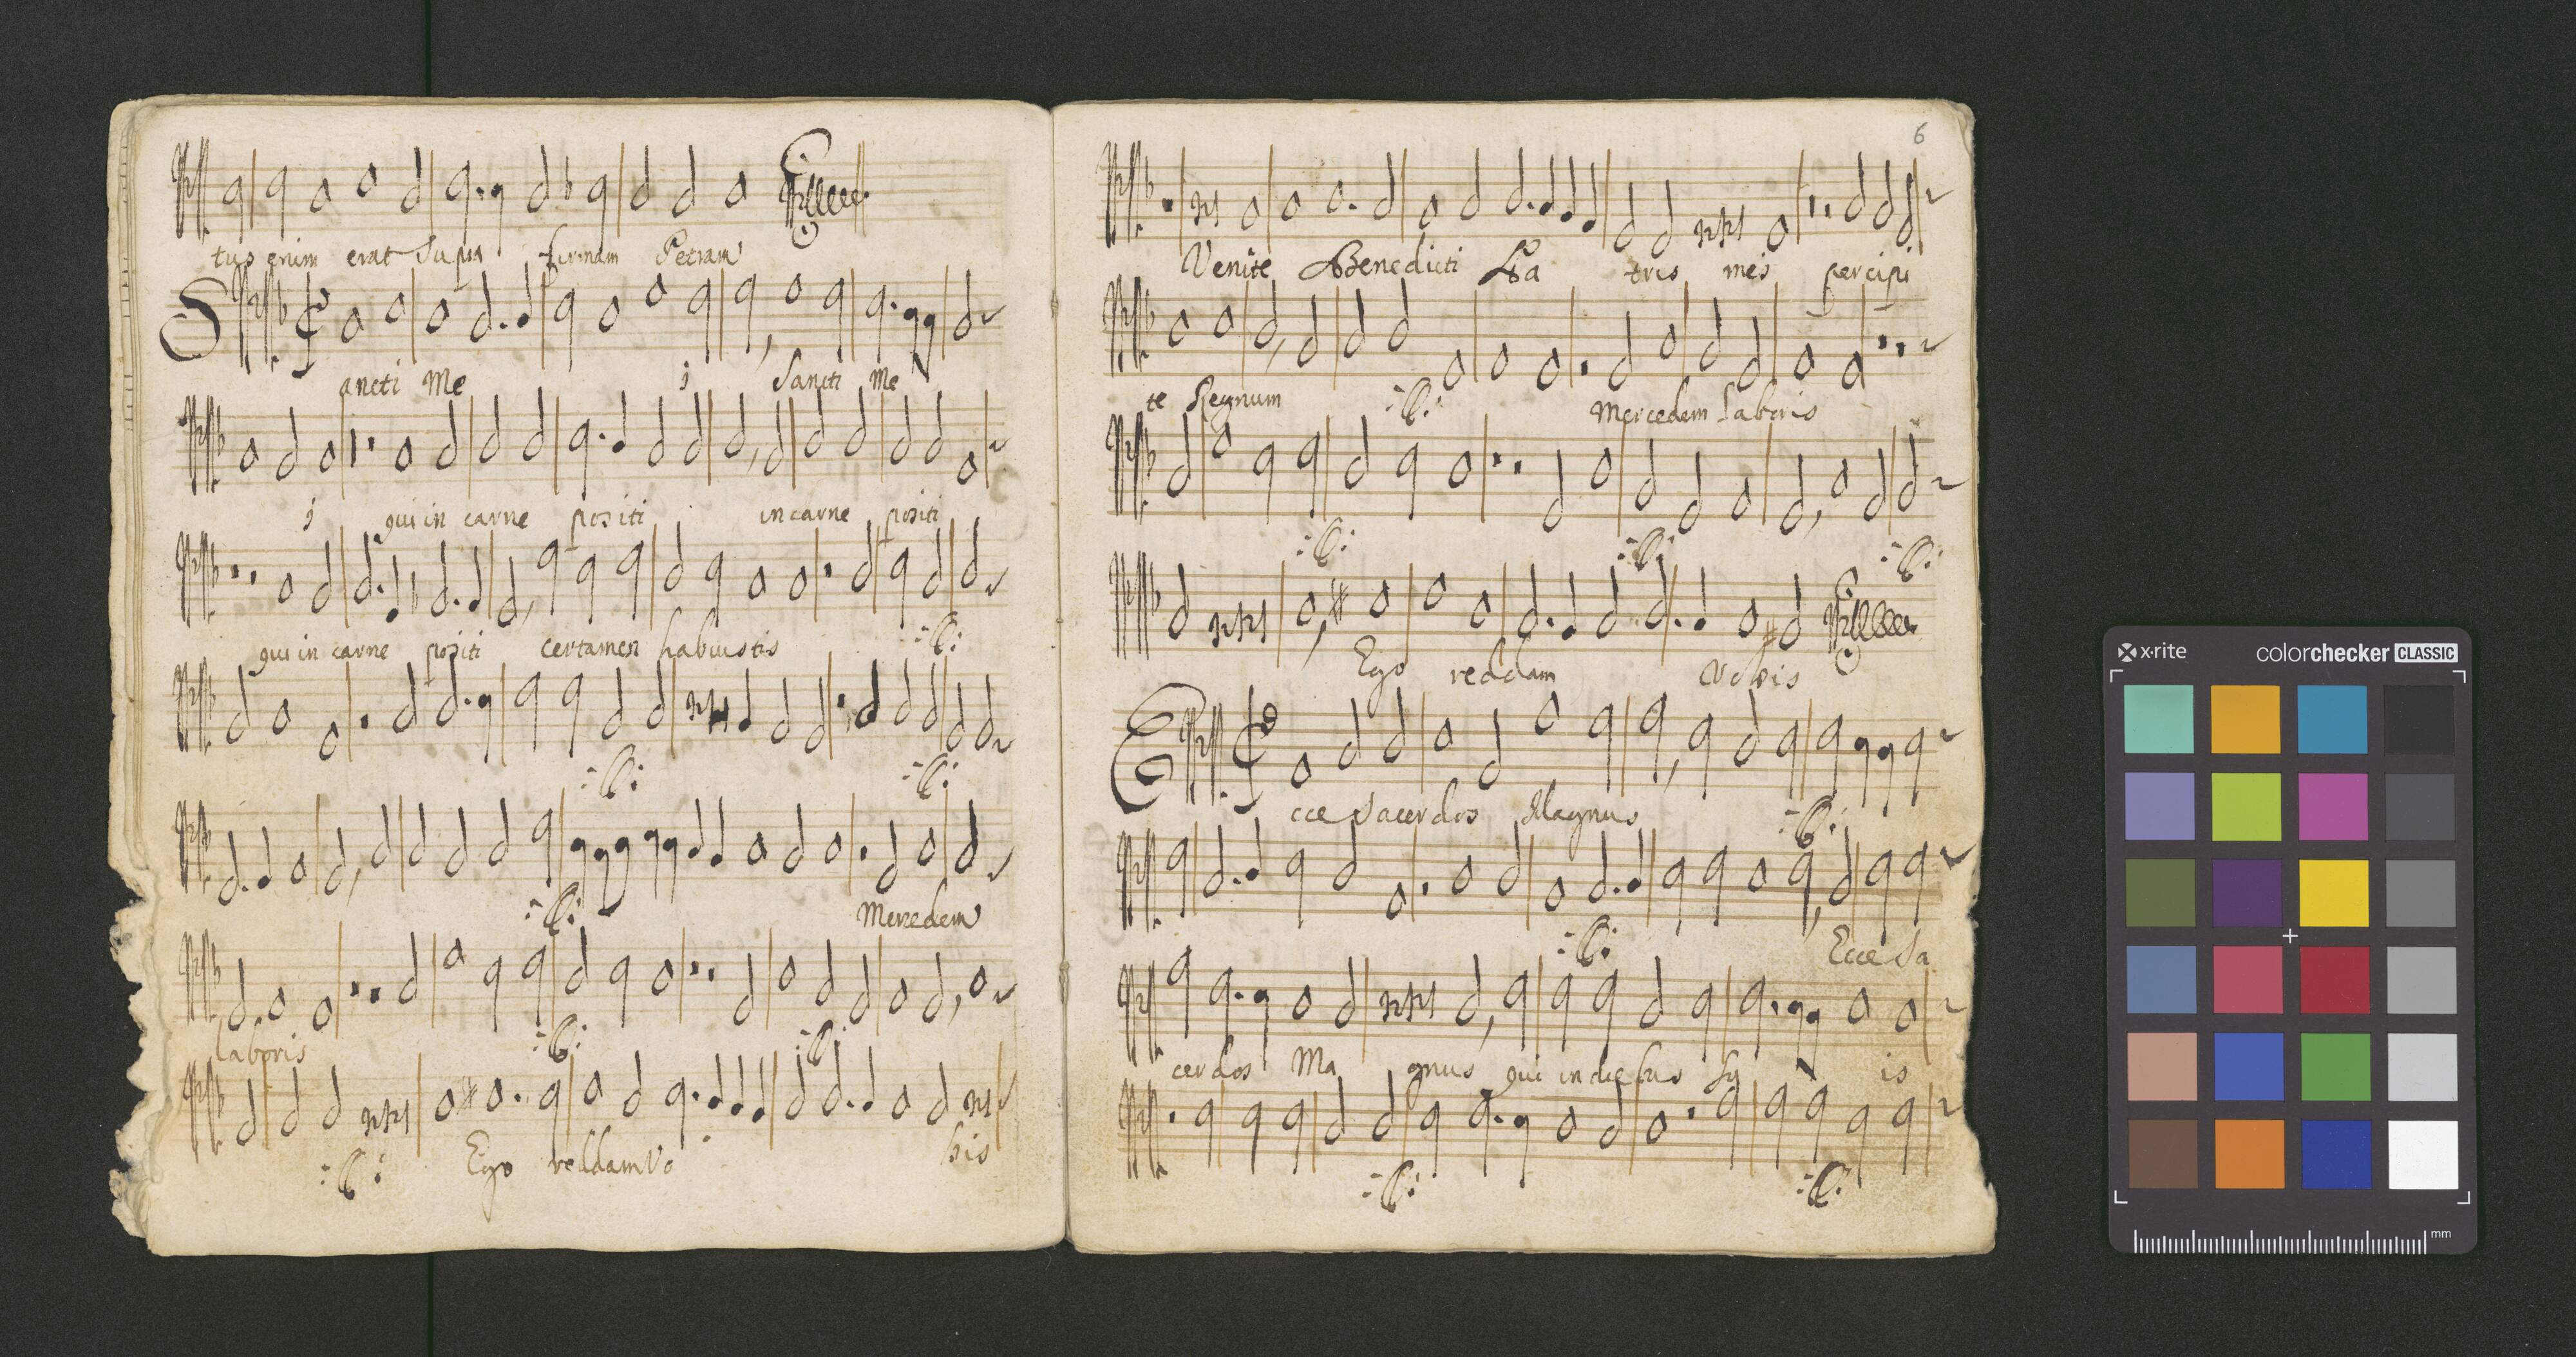 tus enim erat supra firmam Petram
Sancti Me j Sancti Me
j qui in carne positi in carne positi
qui in carne positi certamen habuistis
Mercedem
laboris
Ego reddam Vo bis
6
Venite Benedicti Pa tris mei percipi
te Regnum Mercedem laboris
Ego reddam Vobis
Ecce Sacerdos Magnus
Ecce Sa
cerdos Ma gnus qui in diebus su is
x-rite colorchecker CLASSIC
mm